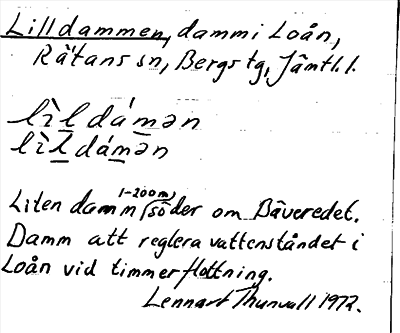 Lilldammen, damm i Loån,
Rätans sn, Bergs tg, Jämtl. l.
lìl dámən
lìl dámən
Liten damm 1-200 m söder om Bäveredet.
Damm att reglera vattenståndet i
Loån vid timmerflottning.
Lennart Thunvall 1972.